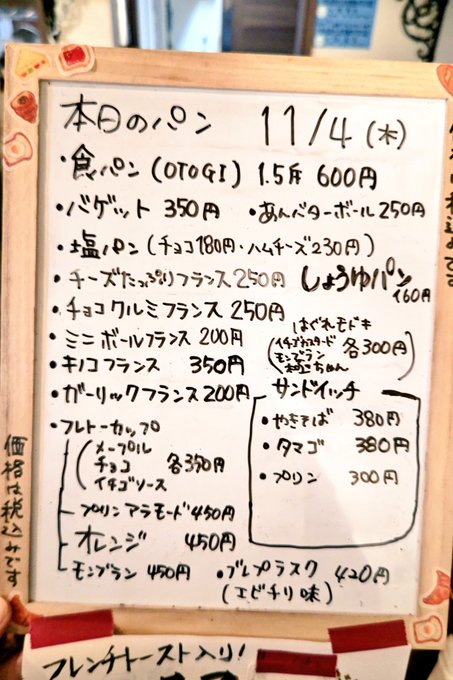 本日のパン 11/4(木)
・食パン(OTOGI) 1.5斤 600円
・バゲット 350円 ・あんバターボール250円
・塩パン(チョコ180円・ハムチーズ230円)
・チーズたっぷりフランス250円 しょうゆパン
160円
・チョコクルミフランス250円
・ミニボールフランス 200円
はぐれモドキ
(イチゴカスタード
モンブラン
各300円)
・キノコフランス 350円
・ガーリックフランス200円
サンドイッチ
・やきそば 380円
・タマゴ 380円
・プリン 300円
・フレトーカップ
(メープル
チョコ 各350円
イチゴソース
プリンアラモード450円
オレンジ 450円
モンブラン 450円
・ブレプラスク 420円
(エビチリ味)
価格は税込みです
フレンチトースト入り!